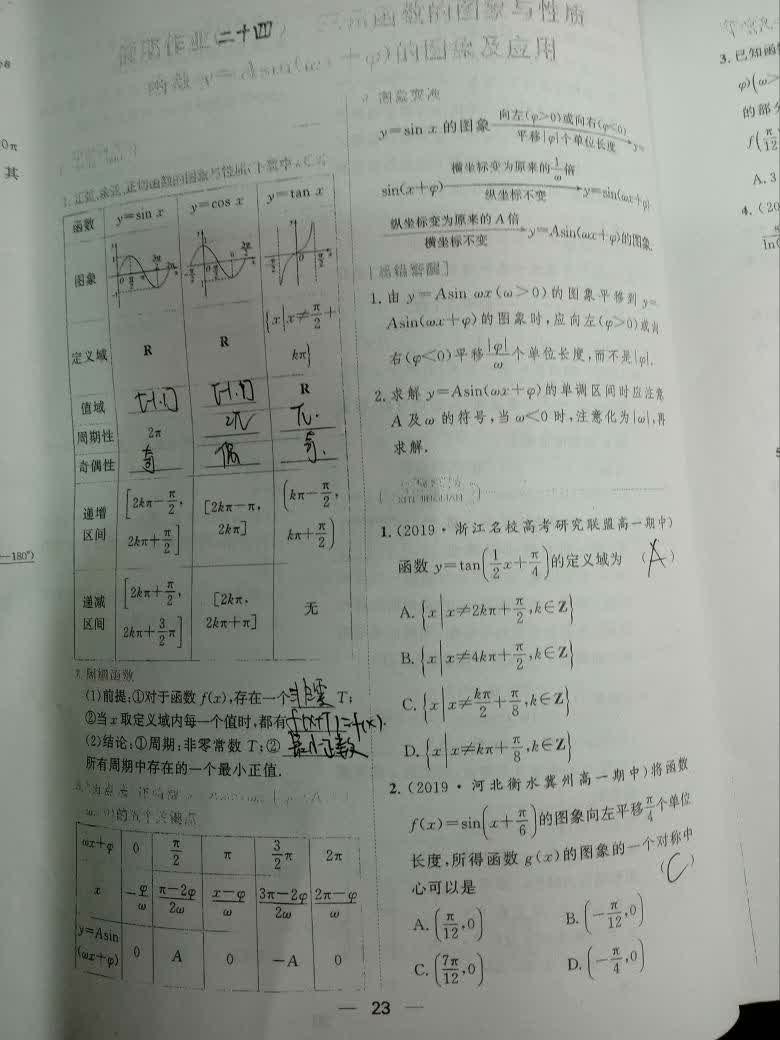 假期作业(二十四)
函数的图象与性质
的图象及应用
函数 y=sin x y=cos x y=tan x
图象
定义域 R R {x|x≠π/2+kπ}
值域 [-1,1] [-1,1] R
周期性 2π 2π π.
奇偶性 奇 偶 奇.
递增区间 [2kπ-π/2, 2kπ+π/2] [2kπ-π, 2kπ] (kπ-π/2, kπ+π/2)
递减区间 [2kπ+π/2, 2kπ+3/2π] [2kπ, 2kπ+π] 无
(1)前提:①对于函数 f(x),存在一个非零 T;
②当 x 取定义域内每一个值时,都有f(x+T)=f(x).
(2)结论:①周期:非零常数 T;②最小正数
所有周期中存在的一个最小正值.
的五个关键点
ωx+φ 0 π/2 π 3/2π 2π
x -φ/ω (π-2φ)/2ω (π-φ)/ω (3π-2φ)/2ω (2π-φ)/ω
y=Asin(ωx+φ) 0 A 0 -A 0
图象变换
y=sin x 的图象 向左(φ>0)或向右(φ<0) 平移|φ|个单位长度 y=
sin(x+φ) 横坐标变为原来的1/ω倍 纵坐标不变 y=sin(ωx+φ)
纵坐标变为原来的 A 倍 横坐标不变 y=Asin(ωx+φ)的图象
1.由 y=Asin ωx(ω>0)的图象平移到 y=
Asin(ωx+φ)的图象时,应向左(φ>0)或向
右(φ<0)平移|φ|/ω个单位长度,而不是|φ|.
2.求解 y=Asin(ωx+φ)的单调区间时应注意
A 及 ω 的符号,当 ω<0 时,注意化为|ω|,再
求解.
1.(2019·浙江名校高考研究联盟高一期中)
函数 y=tan(1/2x+π/4)的定义域为 (A)
A.{x|x≠2kπ+π/2,k∈Z}
B.{x|x≠4kπ+π/2,k∈Z}
C.{x|x≠kπ/2+π/8,k∈Z}
D.{x|x≠kπ+π/8,k∈Z}
2.(2019·河北衡水冀州高一期中)将函数
f(x)=sin(x+π/6)的图象向左平移π/4个单位
长度,所得函数 g(x)的图象的一个对称中
心可以是 (C)
A.(π/12,0) B.(-π/12,0)
C.(7π/12,0) D.(-π/4,0)
— 23 —
0π
其
—180°)
3.已知函
φ)(ω>
的部分
f(π/12
A.3
4.(20